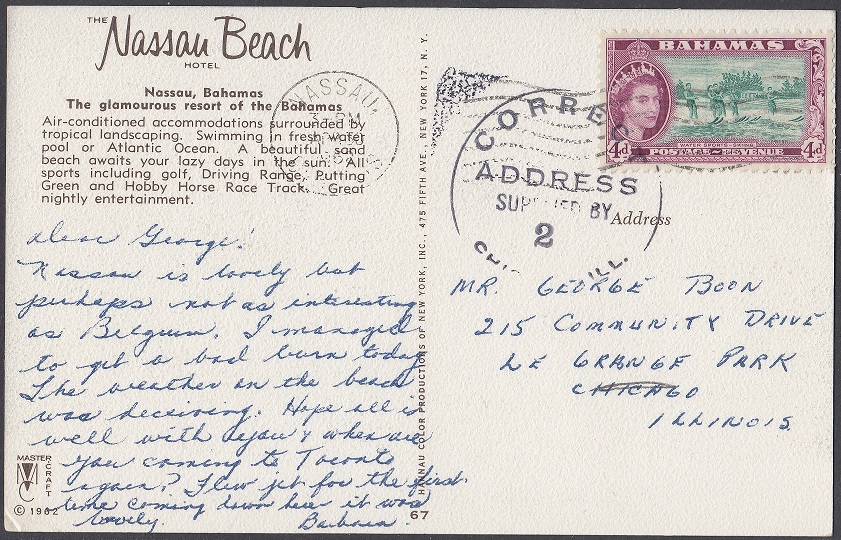 THE
Nassau Beach
HOTEL
Nassau, Bahamas
The glamourous resort of the Bahamas
Air-conditioned accommodations surrounded by
tropical landscaping. Swimming in fresh water
pool or Atlantic Ocean. A beautiful sand
beach awaits your lazy days in the sun. All
sports including golf, Driving Range, Putting
Green and Hobby Horse Race Track. Great
nightly entertainment.
Dear George!
Nassau is lovely but
perhaps not as interesting
as Belgium. I managed
to get a bad burn today
The weather on the beach
was deceiving. Hope all is
well with you & when are
you coming to Toronto
again? Flew jet for the first
time coming down here it was
lovely. Barbara
MASTER
CRAFT
© 1962
67
HANNAU COLOR PRODUCTIONS OF NEW YORK, INC., 475 FIFTH AVE., NEW YORK 17, N. Y.
NASSAU
BAHAMAS
WATER SPORTS-SKIING
4d POSTAGE REVENUE 4d
CORRECT
ADDRESS
SUPPLIED BY
2
ILL.
Address
MR. GEORGE BOON
215 COMMUNITY DRIVE
LE GRANGE PARK
CHICAGO
ILLINOIS